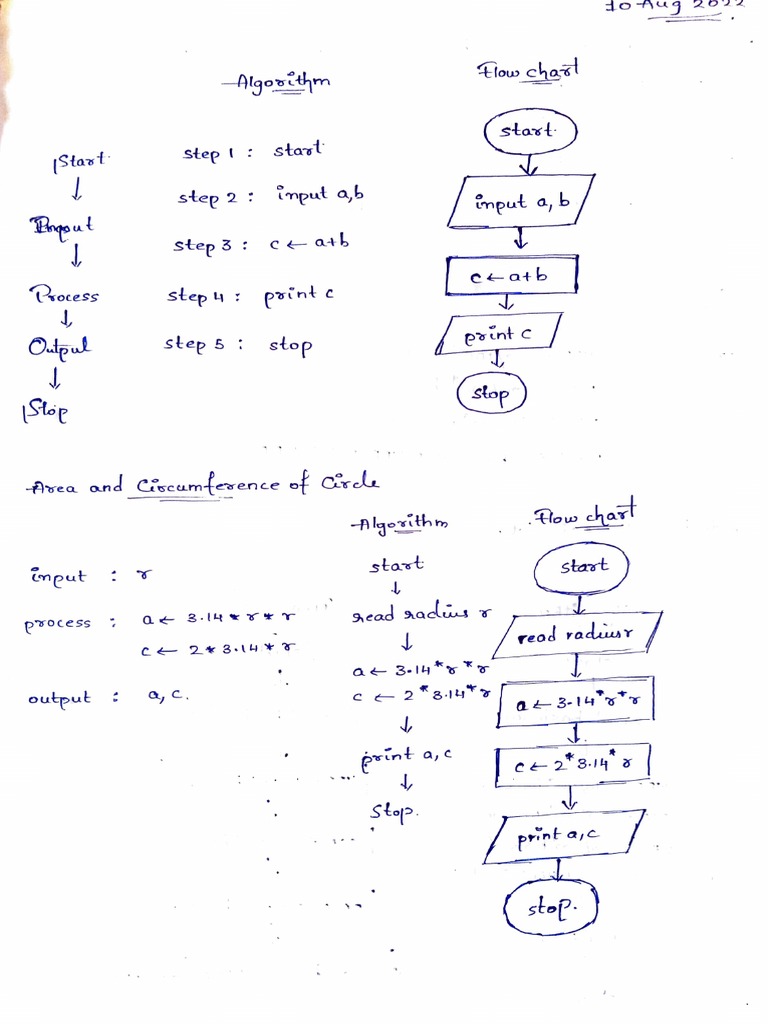 10 Aug 2022
Algorithm
Flow chart
Start
↓
Input
↓
Process
↓
Output
↓
Stop
step 1 : start
step 2 : input a,b
step 3 : c ← a+b
step 4 : print c
step 5 : stop
start
input a, b
c ← a+b
print c
stop
Area and Circumference of Circle
input : r
process : a ← 3.14 * r * r
c ← 2 * 3.14 * r
output : a, c.
Algorithm
start
↓
read radius r
↓
a ← 3.14 * r * r
c ← 2 * 3.14 * r
↓
print a, c
↓
Stop.
Flow chart
start
read radius r
a ← 3.14 * r * r
c ← 2 * 3.14 * r
print a, c
stop.